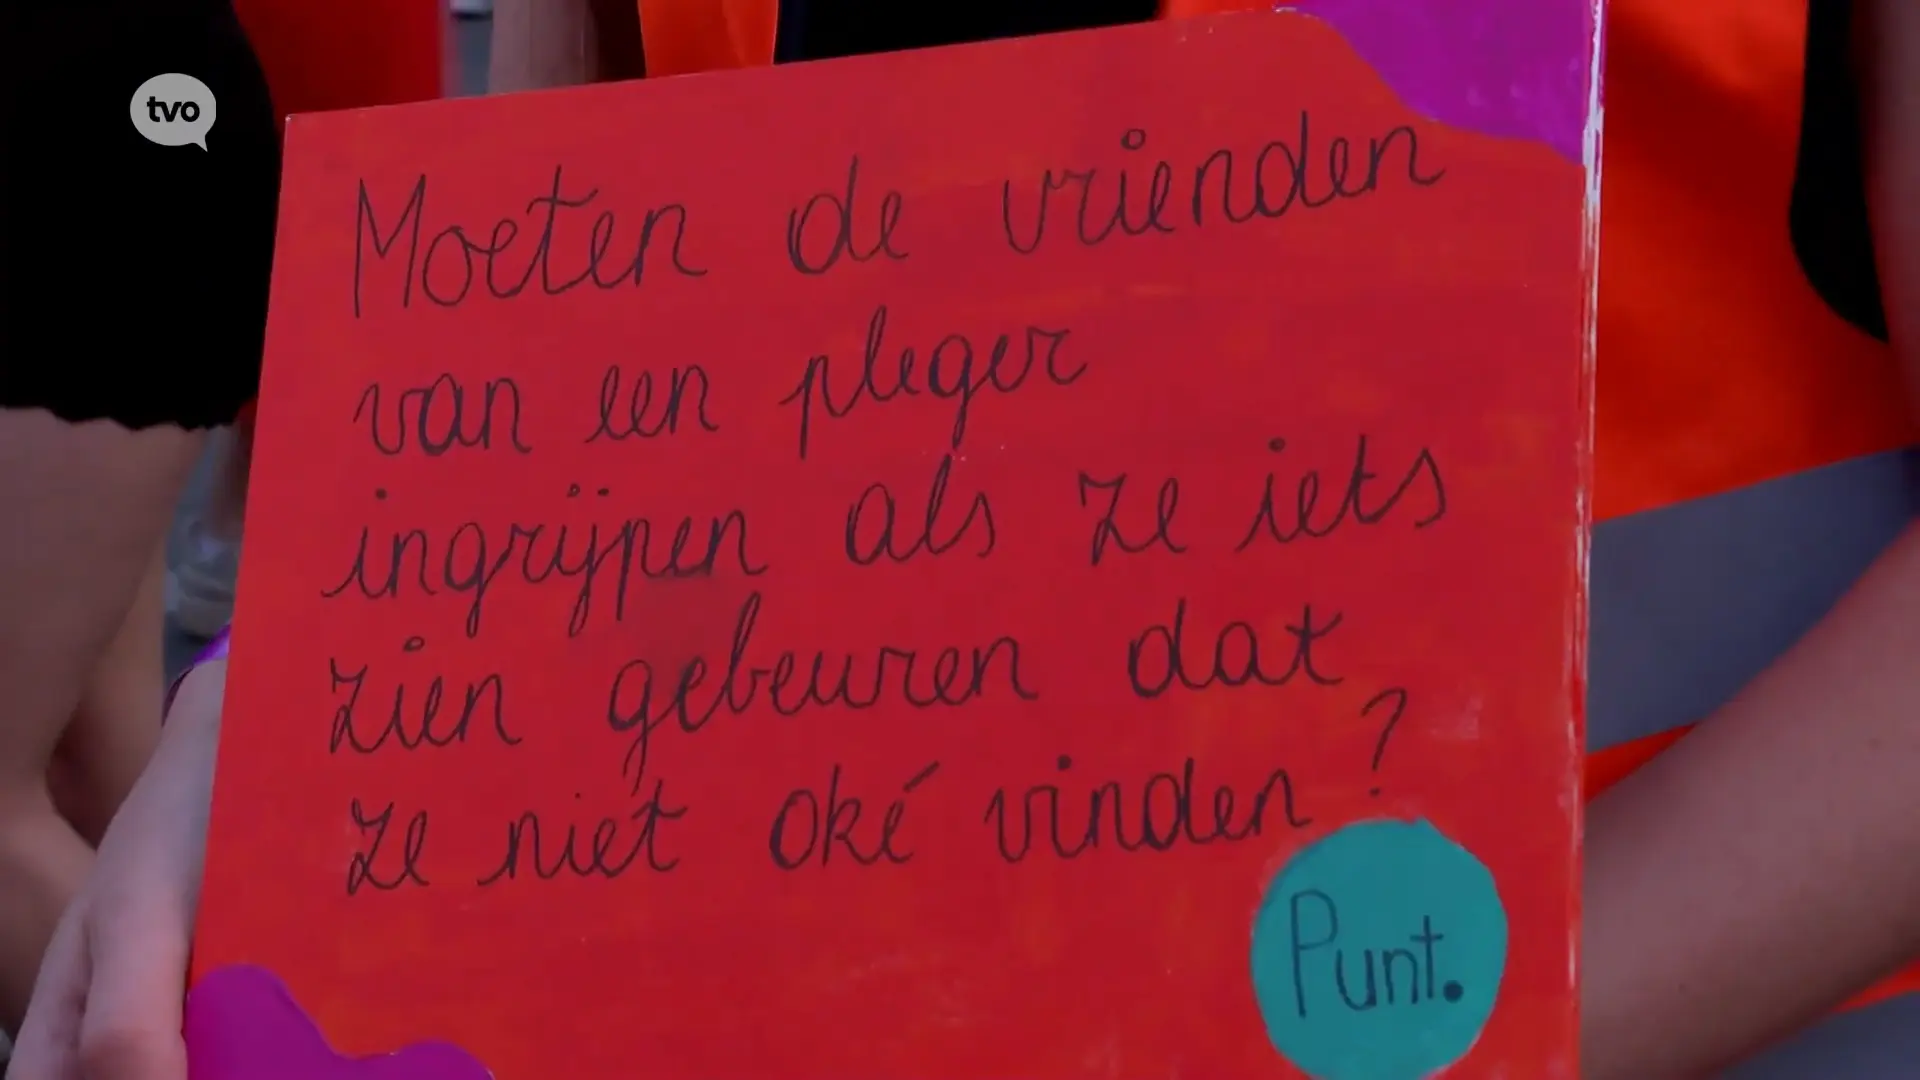 tvo
Moeten de vrienden
van een pleger
ingrijpen als ze iets
zien gebeuren dat
ze niet oké vinden?
Punt.